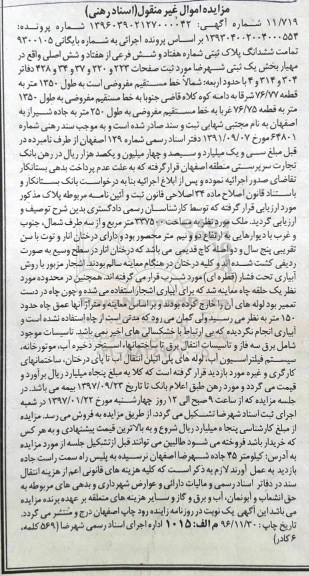 مزایده اموال غیر منقول (اسناد رهنی)
۱۱/۷۱۹ شماره آگهی: ۱۳۹۶۰۳۹۰۲۱۲۷۰۰۰۰۴۲ شماره پرونده:
۱۳۹۳۰۴۰۰۲۰۰۴۰۰۰۵۵۴ بر اساس پرونده اجرائی به شماره بایگانی ۹۳۰۰۱۰۵
تمامت ششدانگ پلاک ثبتی شماره هفتاد و شش فرعی از هفتاد و شش اصلی واقع در
مهیار بخش یک ثبتی شهرضا مورد ثبت صفحات ۲۲۳ و ۲۲۰ و ۳۷ و ۳۴ و ۴۲۸ دفاتر
۳۰۴ و ۳۱۴ و ۴ با حدود اربعه: شمالاً خط مستقیم مفروضی است به طول ۱۳۵۰ متر به
قطعه ۷۶/۷۷ شرقا به دامنه کوه کلاه قاضی جنوبا به خط مستقیم مفروضی به طول ۱۳۵۰
متر به قطعه ۷۶/۷۵ غربا به خط مستقیم مفروضی به طول ۲۵۰ متر به جاده شیراز به
اصفهان به نام مجتبی شهابی ثبت و سند صادر شده است و به موجب سند رهنی شماره
۶۴۸۰۱ مورخ ۱۳۹۱/۰۹/۰۷ دفتر اسناد رسمی شماره ۱۲۹ اصفهان از طرف نامبرده در
قبال مبلغ سی و یک میلیارد و سیصد و چهار میلیون و یکصد هزار ریال در رهن بانک
تجارت سرپرستی منطقه اصفهان قرار گرفته که به علت عدم پرداخت بدهی بستانکار
تقاضای صدور اجرائیه نموده و پس از ابلاغ اجرائیه بنا به درخواست بانک بستانکار و
باستناد قانون اصلاح ماده ۳۴ اصلاحی قانون ثبت و آئین نامه مربوطه پلاک مذکور
مورد ارزیابی قرار گرفته که توسط کارشناسان رسمی دادگستری بدین شرح توصیف و
ارزیابی گردید. ملک مورد نظر به مساحت ۳۳۷۵۰۰ متر مربع و از سه طرف شمال، جنوب
و غرب با دیوارهایی به ارتفاع دو و نیم متر محصور بود و دارای درختان انار و توت با سن
تقریبی پنج سال و دو اصله کاج قدیمی می باشد که درختان انار در سطح وسیع به صورت
ردیفی کشت شده اند و کلیه درختان در هنگام معاینه سالم بودند. اشجار مزبور با روش
آبیاری تحت فشار (قطره ای) مورد شرب قرار می گرفته اند. همچنین در محدوده مورد
نظر یک حلقه چاه معاینه شد که برای آبیاری اشجار استفاده می شده و چون چاه در دست
تعمیر بود لوله های آن را خارج کرده بودند و بر اساس معاینه و متراژ آنها عمق چاه حدود
۱۵۰ متر به نظر می رسید ولی گمان می رود که مدتی است از چاه استفاده نشده است و
آبیاری انجام نگردیده که بی ارتباط با خشکسالی های اخیر نمی باشد. تاسیسات موجود
شامل برق سه فاز و تاسیسات انتقال برق تا ساختمانها، استخر ذخیره آب، موتورخانه،
سیستم فیلتراسیون آب، لوله های پلی اتیلن انتقال آب تا پای درختان، ساختمانهای
کارگری و غیره مورد بازدید قرار گرفته است که کلا به مبلغ پنجاه میلیارد ریال برآورد و
قیمت می گردد و مورد رهن طبق اعلام بانک تا تاریخ ۱۳۹۷/۰۹/۲۳ بیمه می باشد. در
جلسه مزایده که از ساعت ۹ صبح الی ۱۲ روز چهارشنبه مورخ ۱۳۹۷/۰۱/۲۲ در شعبه
اجرای ثبت اسناد شهرضا تشکیل می گردد. از طریق مزایده به فروش می رسد. مزایده
از مبلغ کارشناسی پنجاه میلیارد ریال شروع و به بالاترین قیمت پیشنهادی و به هر کس
که خریدار باشد فروخته می شود طالبین می توانند قبل از تشکیل جلسه از مورد مزایده
به آدرس: کیلومتر ۴۵ جاده شهرضا اصفهان نرسیده به پلیس راه سمت راست جاده
بازدید به عمل آورند لازم به ذکر است که کلیه هزینه های قانونی اعم از هزینه انتقال
سند در دفاتر اسناد رسمی و مالیات دارائی و عوارض شهرداری و بدهی های مربوطه به
حق انشعاب و آبونمان، آب و برق و گاز و سایر هزینه های متعلقه بر عهده برنده مزایده
می باشد این آگهی یک نوبت در روزنامه زاینده رود چاپ اصفهان درج و منتشر می گردد.
تاریخ چاپ: ۹۶/۱۱/۳۰ م الف: ۱۰۱۵ اداره اجرای اسناد رسمی شهرضا (۵۶۹ کلمه،
۶ کادر)